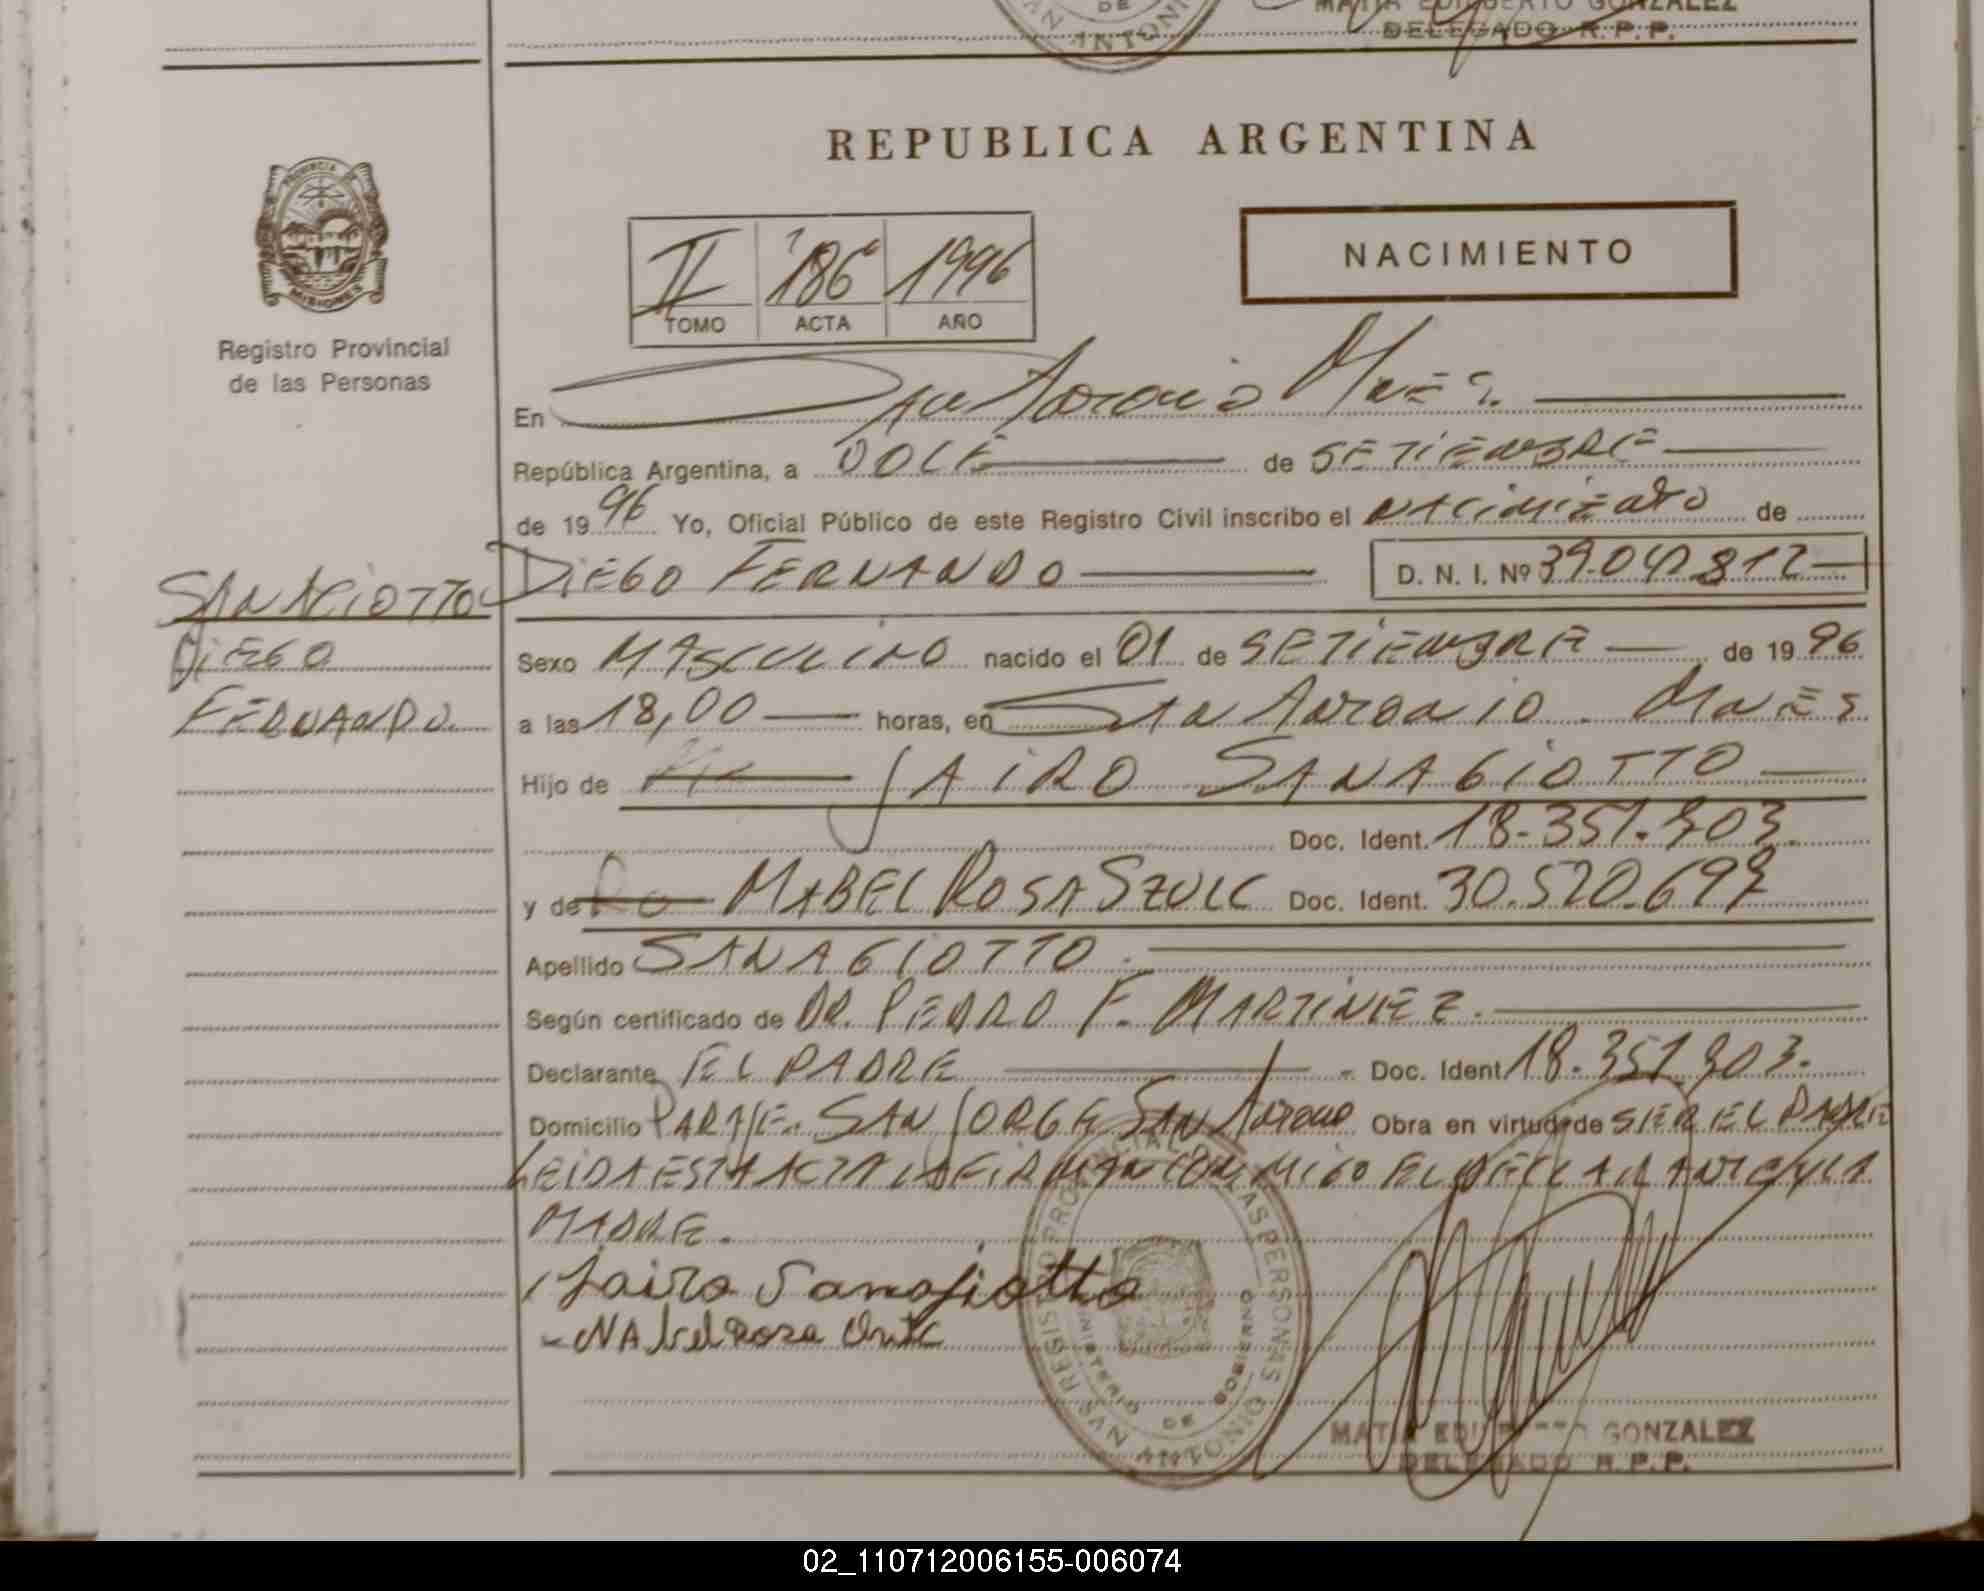 MATIA EDILBERTO GONZALEZ
DELEGADO R.P.P.
REPUBLICA ARGENTINA
PROVINCIA DE
MISIONES
Registro Provincial
de las Personas
II 186 1996
TOMO ACTA AÑO
NACIMIENTO
En San Antonio Mnes.
República Argentina, a DOCE de SETIEMBRE
de 1996 Yo, Oficial Público de este Registro Civil inscribo el nacimiento de
DIEGO FERNANDO D. N. I. Nº 39.041.812
SANAGIOTTO
DIEGO
FERNANDO.
Sexo MASCULINO nacido el 01 de SETIEMBRE de 1996
a las 18,00 horas, en San Antonio Mnes
Hijo de JAIRO SANAGIOTTO
Doc. Ident. 18-351.903.
y de MABEL ROSA SZULC Doc. Ident. 30.520.697
Apellido SANAGIOTTO.
Según certificado de DR. PEDRO F. MARTINEZ.
Declarante EL PADRE Doc. Ident 18.351.903.
Domicilio PARAJE. SAN JORGE SAN Antonio Obra en virtud de SER EL PADRE
LEIDA ESTA ACTA LA FIRMAN CONMIGO EL DECLARANTE Y LA
MADRE.
Jairo Sanagiotto
REGISTRO PROVINCIAL DE LAS PERSONAS
MINISTERIO DE GOBIERNO
SAN ANTONIO
MATIA EDILBERTO GONZALEZ
DELEGADO R.P.P.
02_110712006155-006074